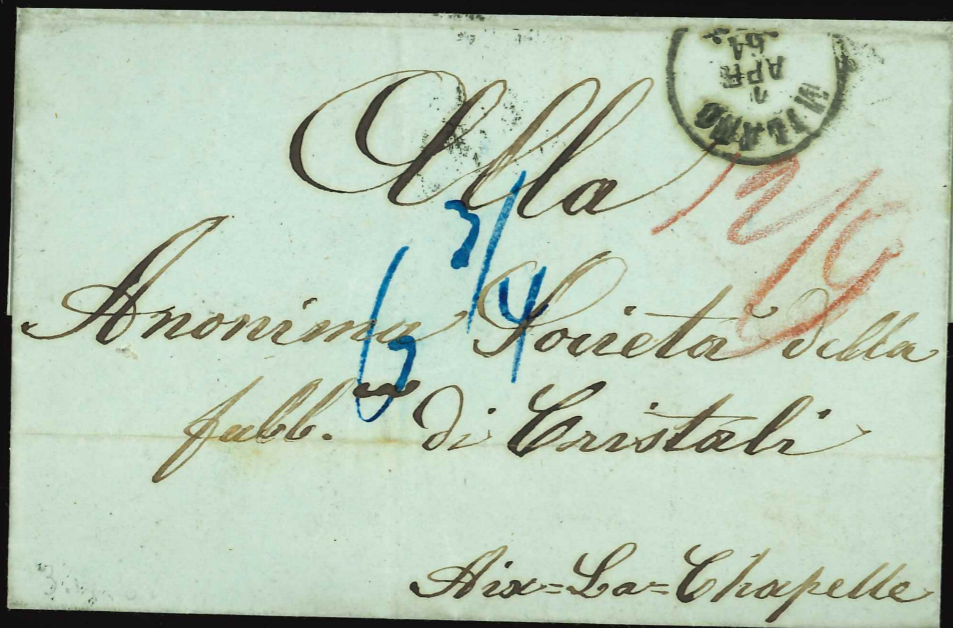 MILANO
APR
Alla
Anonima Società della
fabb.ca di Cristali
Aix=La=Chapelle
6 3/4
12/9